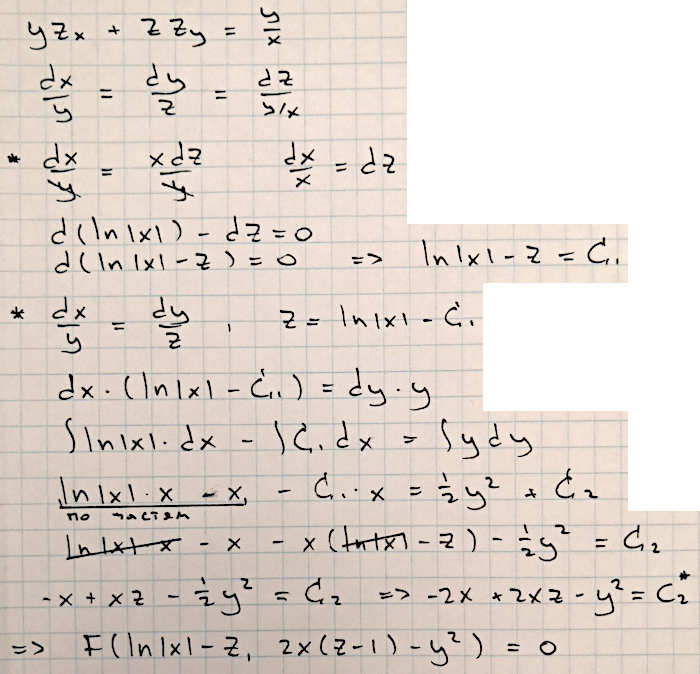 y z_x + z z_y = y/x
dx/y = dy/z = dz/(y/x)
* dx/y = x dz/y    dx/x = dz
d(ln|x|) - dz = 0
d(ln|x| - z) = 0  =>  ln|x| - z = C₁.
* dx/y = dy/z , z = ln|x| - C₁.
dx · (ln|x| - C₁) = dy · y
∫ln|x| · dx - ∫C₁ dx = ∫y dy
ln|x| · x - x - C₁ · x = ½y² + C₂
по частям
ln|x| x - x - x(ln|x| - z) - ½y² = C₂
-x + xz - ½y² = C₂ => -2x + 2xz - y² = C₂*
=> F(ln|x| - z, 2x(z-1) - y²) = 0